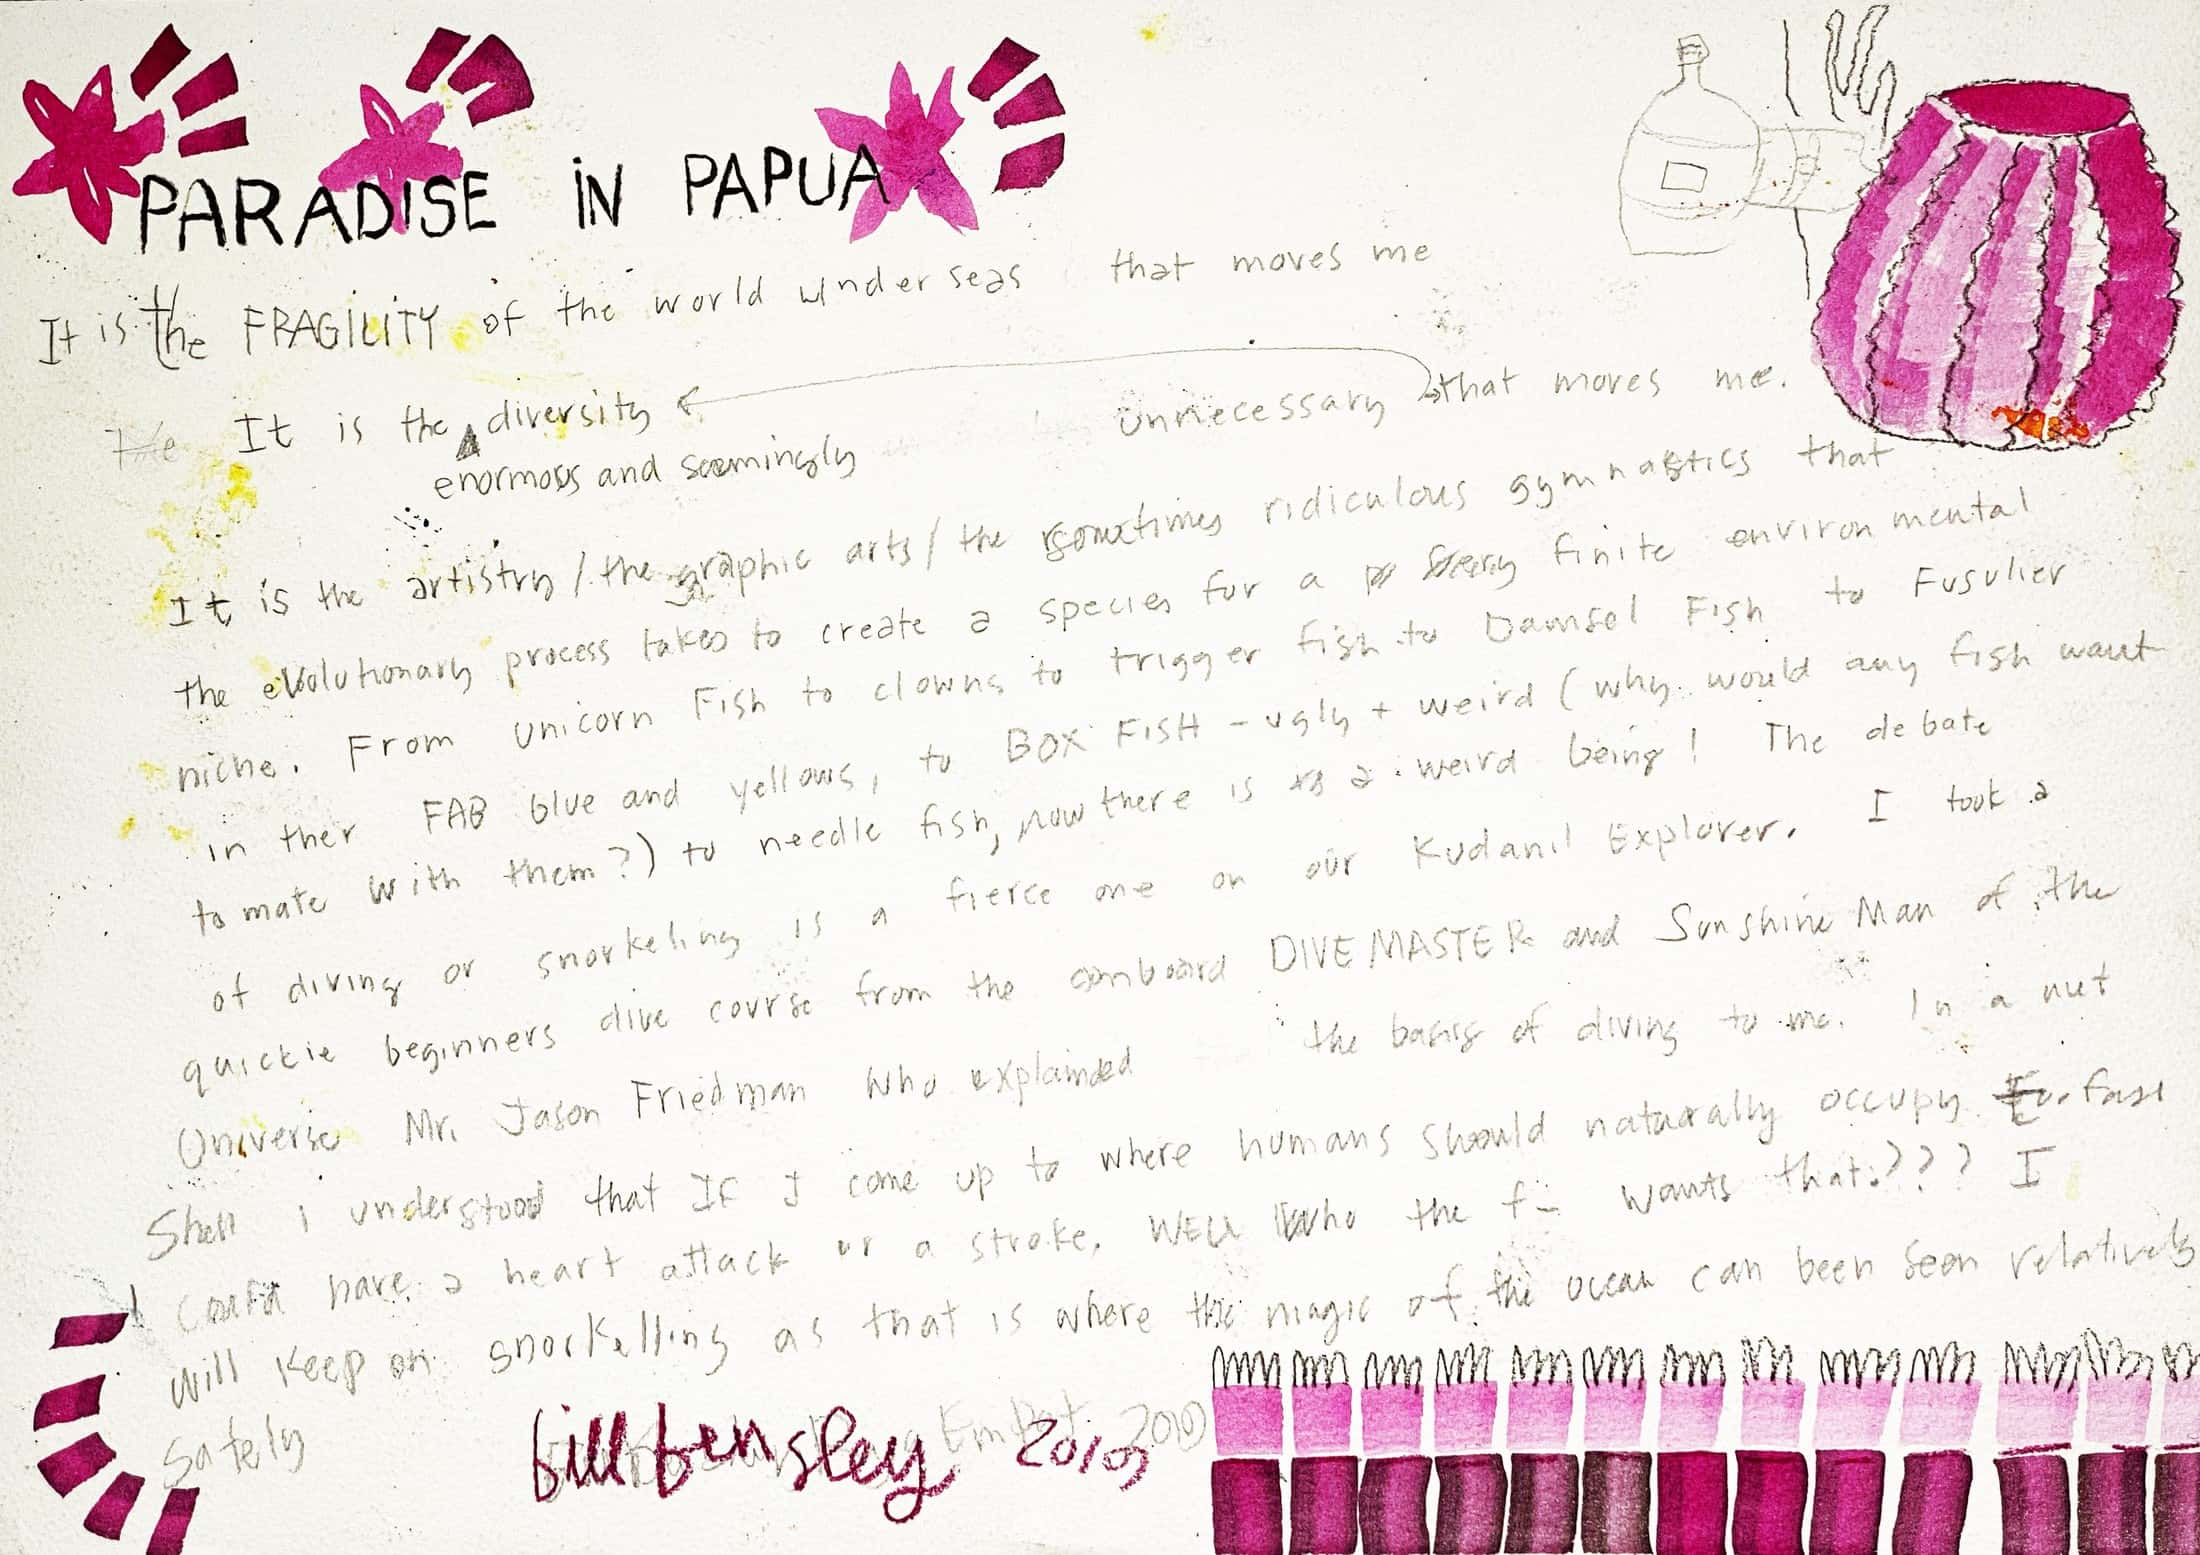 PARADISE IN PAPUA
It is the FRAGILITY of the world under seas that moves me
The It is the diversity unnecessary that moves me.
enormous and seemingly
It is the artistry / the graphic arts / the sometimes ridiculous gymnastics that
the evolutionary process takes to create a species for a very finite environmental
niche. From unicorn Fish to clowns to trigger fish to Damsel Fish to Fusulier
in ther FAB blue and yellows, to BOX FISH - ugly + weird (why would any fish want
to mate with them?) to needle fish, now there is a weird being! The debate
of diving or snorkeling is a fierce one on our Kudanil Explorer. I took a
quickie beginners dive course from the onboard DIVE MASTER and Sunshine Man of the
Universe Mr. Jason Friedman who explained the basis of diving to me. In a nut
Shell i understood that IF I come up to where humans should naturally occupy fast
I could have a heart attack or a stroke. WELL Who the f- wants that??? I
will keep on snorkelling as that is where the magic of the ocean can been seen relatively
safely
bill bensley 2019